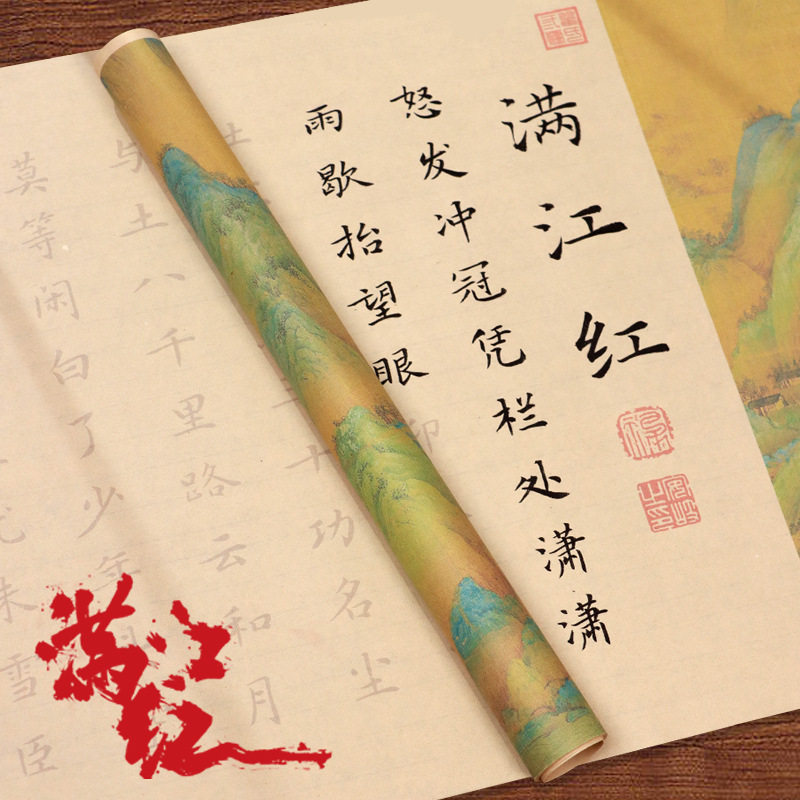 满江红
怒发冲冠凭栏处潇潇
雨歇抬望眼
仰
三十功名尘
与土八千里路云和月
莫等闲白了少年
雪臣
满江红